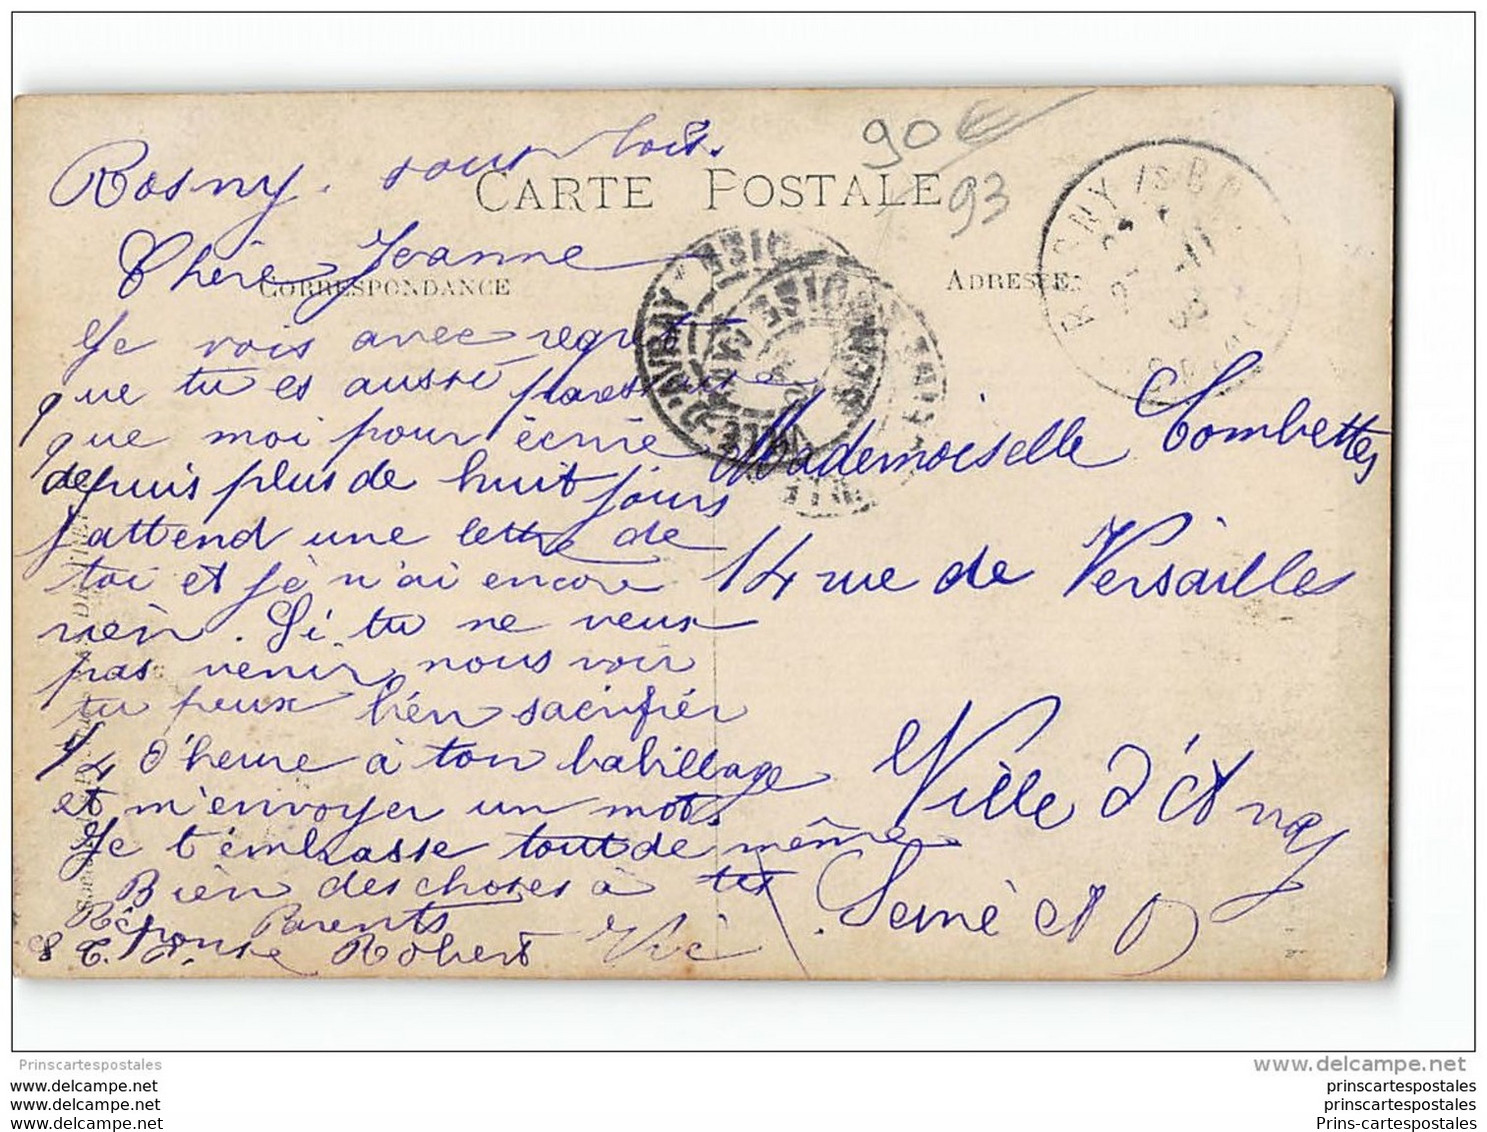 90€
93
Rosny sous bois.
CARTE POSTALE
CORRESPONDANCE
ADRESSE
Chère Jeanne
Je vois avec regret
que tu es aussi paresseuse
que moi pour écrire
depuis plus de huit jours
j'attend une lettre de
toi et je n'ai encore
rien. Si tu ne veux
pas venir nous voir
tu peux bien sacrifier
1/4 d'heure à ton babillage
et m'envoyer un mot.
Je t'embrasse tout de même
Bien des choses à tes
Parents
Réponse
S.T.P. Robert
Mademoiselle Combettes
14 rue de Versailles
Ville d'Avray
Seine et O
VILLE-D'AVRAY SEINE-ET-OISE
ROSNY /S BOIS
Prinscartespostales
www.delcampe.net
www.delcampe.net
www.delcampe.net
www.delcampe.net
prinscartespostales
prins-cartespostales
Prins-cartespostales